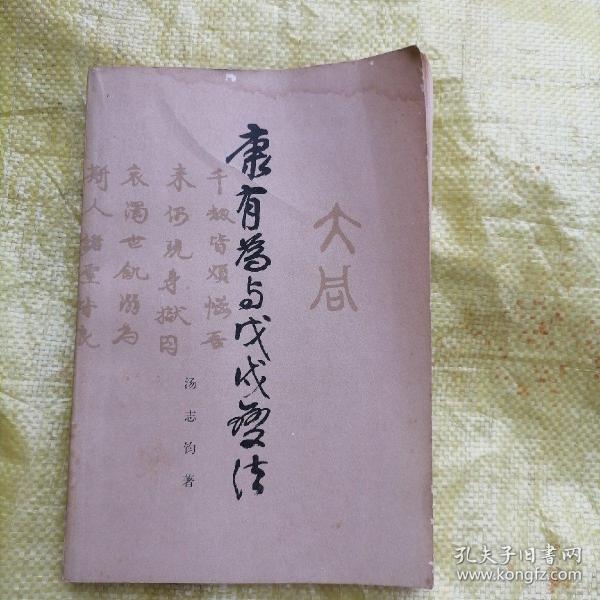 康有為与戊戌变法
汤志钧著
大同
千数皆烦恼吾
来仍现身狱囚
哀濁世飢溺为
斯人
孔夫子旧书网
www.kongfz.com